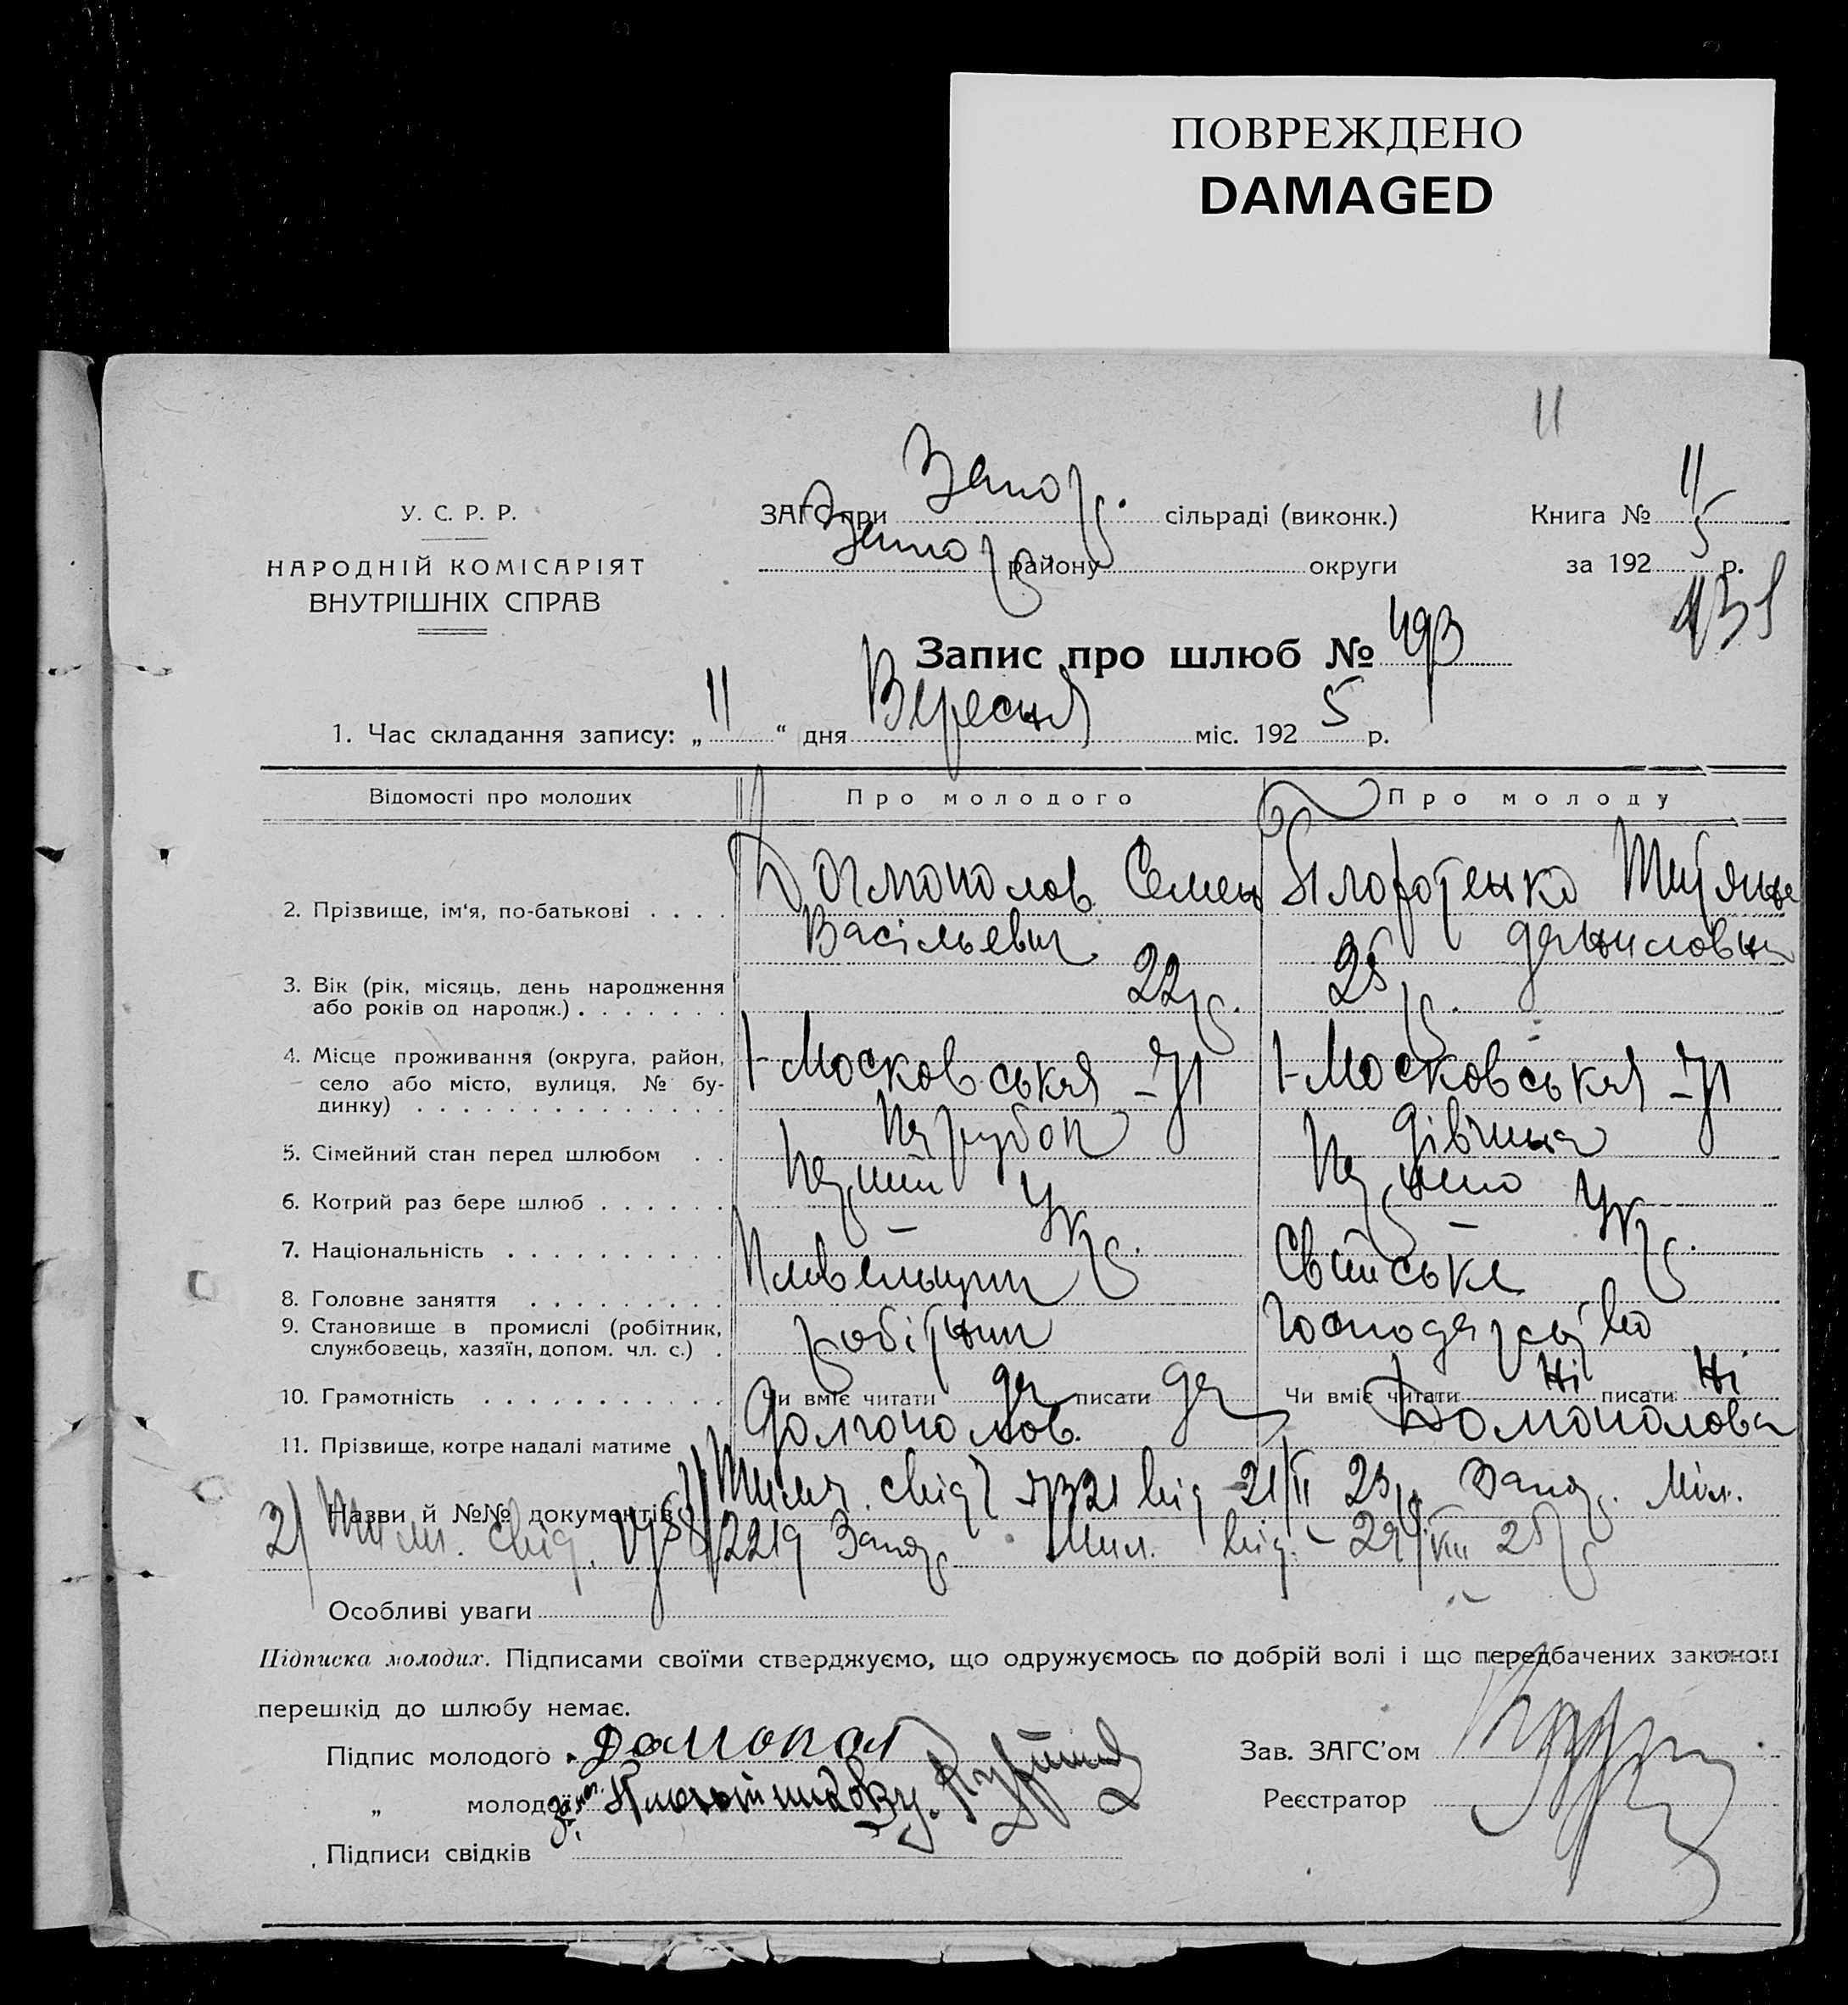 ПОВРЕЖДЕНО
DAMAGED
11
У. С. Р. Р.
НАРОДНІЙ КОМІСАРІЯТ
ВНУТРІШНІХ СПРАВ
ЗАГС при Запор. сільраді (виконк.)
Запор району округи
Книга № 11
за 1925 р.
Запис про шлюб № 493
1. Час складання запису: „ 11 “ дня Вересня міс. 1925 р.
Відомості про молодих Про молодого Про молоду
2. Прізвище, ім'я, по-батькові . . . . Долгополов Семен Тетяна
Васільевич Даниловна
3. Вік (рік, місяць, день народження 22 р. 25 р.
або років од народж.) . . . . . . .
4. Місце проживання (округа, район, 1-Московська - 71 1-Московська - 71
село або місто, вулиця, № бу-
динку) . . . . . . . . . . . . . .
5. Сімейний стан перед шлюбом . . парубок дівчина
6. Котрий раз бере шлюб . . . . . . перший перше
7. Національність . . . . . . . . . . Укр. Укр.
8. Головне заняття . . . . . . . . . Свійське
9. Становище в промислі (робітник, робітник господарство
службовець, хазяїн, допом. чл. с.) .
10. Грамотність . . . . . . . . . . . Чи вміє читати да писати да Чи вміє читати Ні писати Ні
11. Прізвище, котре надалі матиме Долгополов. Долгополова
Назви й №№ документів 1) Тимч. свід. від 21/II 25 р. Запор. Міл.
2) Тимч. свід. 2219 Запор. Мил. від - 29/VIII 25 р
Особливі уваги
Підписка молодих. Підписами своїми стверджуємо, що одружуємось по добрій волі і що передбачених законом
перешкід до шлюбу немає.
Підпис молодого Долгопол
„ молодої
Підписи свідків
Зав. ЗАГС'ом
Реєстратор